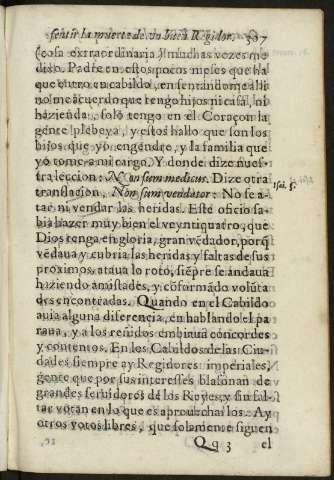 sentir la muerte de vn buen Regidor. 307
(cosa extraordinaria) muchas vezes me
dixo. Padre en estos pocos meses que ha
que entro en cabildo, en sentandome allí
no me acuerdo que tengo hijos ni casa, ni
hazienda, solo tengo en el Coraçon la
gente plebeya, y estos hallo que son los
hijos que yo engendre, y la familia que
yo tome a mi cargo. Y donde dize nues-
tra leccion: Non sum medicus. Dize otra
translacion, Non sum vendator: No se a- Isai. 3.
tar ni vendar las heridas. Este oficio sa-
bia hazer muy bien el veyntiquatro, que
Dios tenga en gloria, gran vēdador, porq̄
vēdaua y cubria las heridas y faltas de sus
proximos, ataua lo roto, siēpre se andaua
haziendo amistades, y cōformādo volūta
des encontradas. Quando en el Cabildo
auia alguna diferencia, en hablando el pa
raua, y a los reñidos embiaua concordes
y contentos. En los Cabildos de las Ciu-
dades siempre ay Regidores imperiales,
gente que por sus interesses blasonan de
grandes seruidores de los Reyes, y sin fal-
tar votan en lo que es aprouecharlos. Ay
otros votos libres, que solamente siguen
Qq 3 el